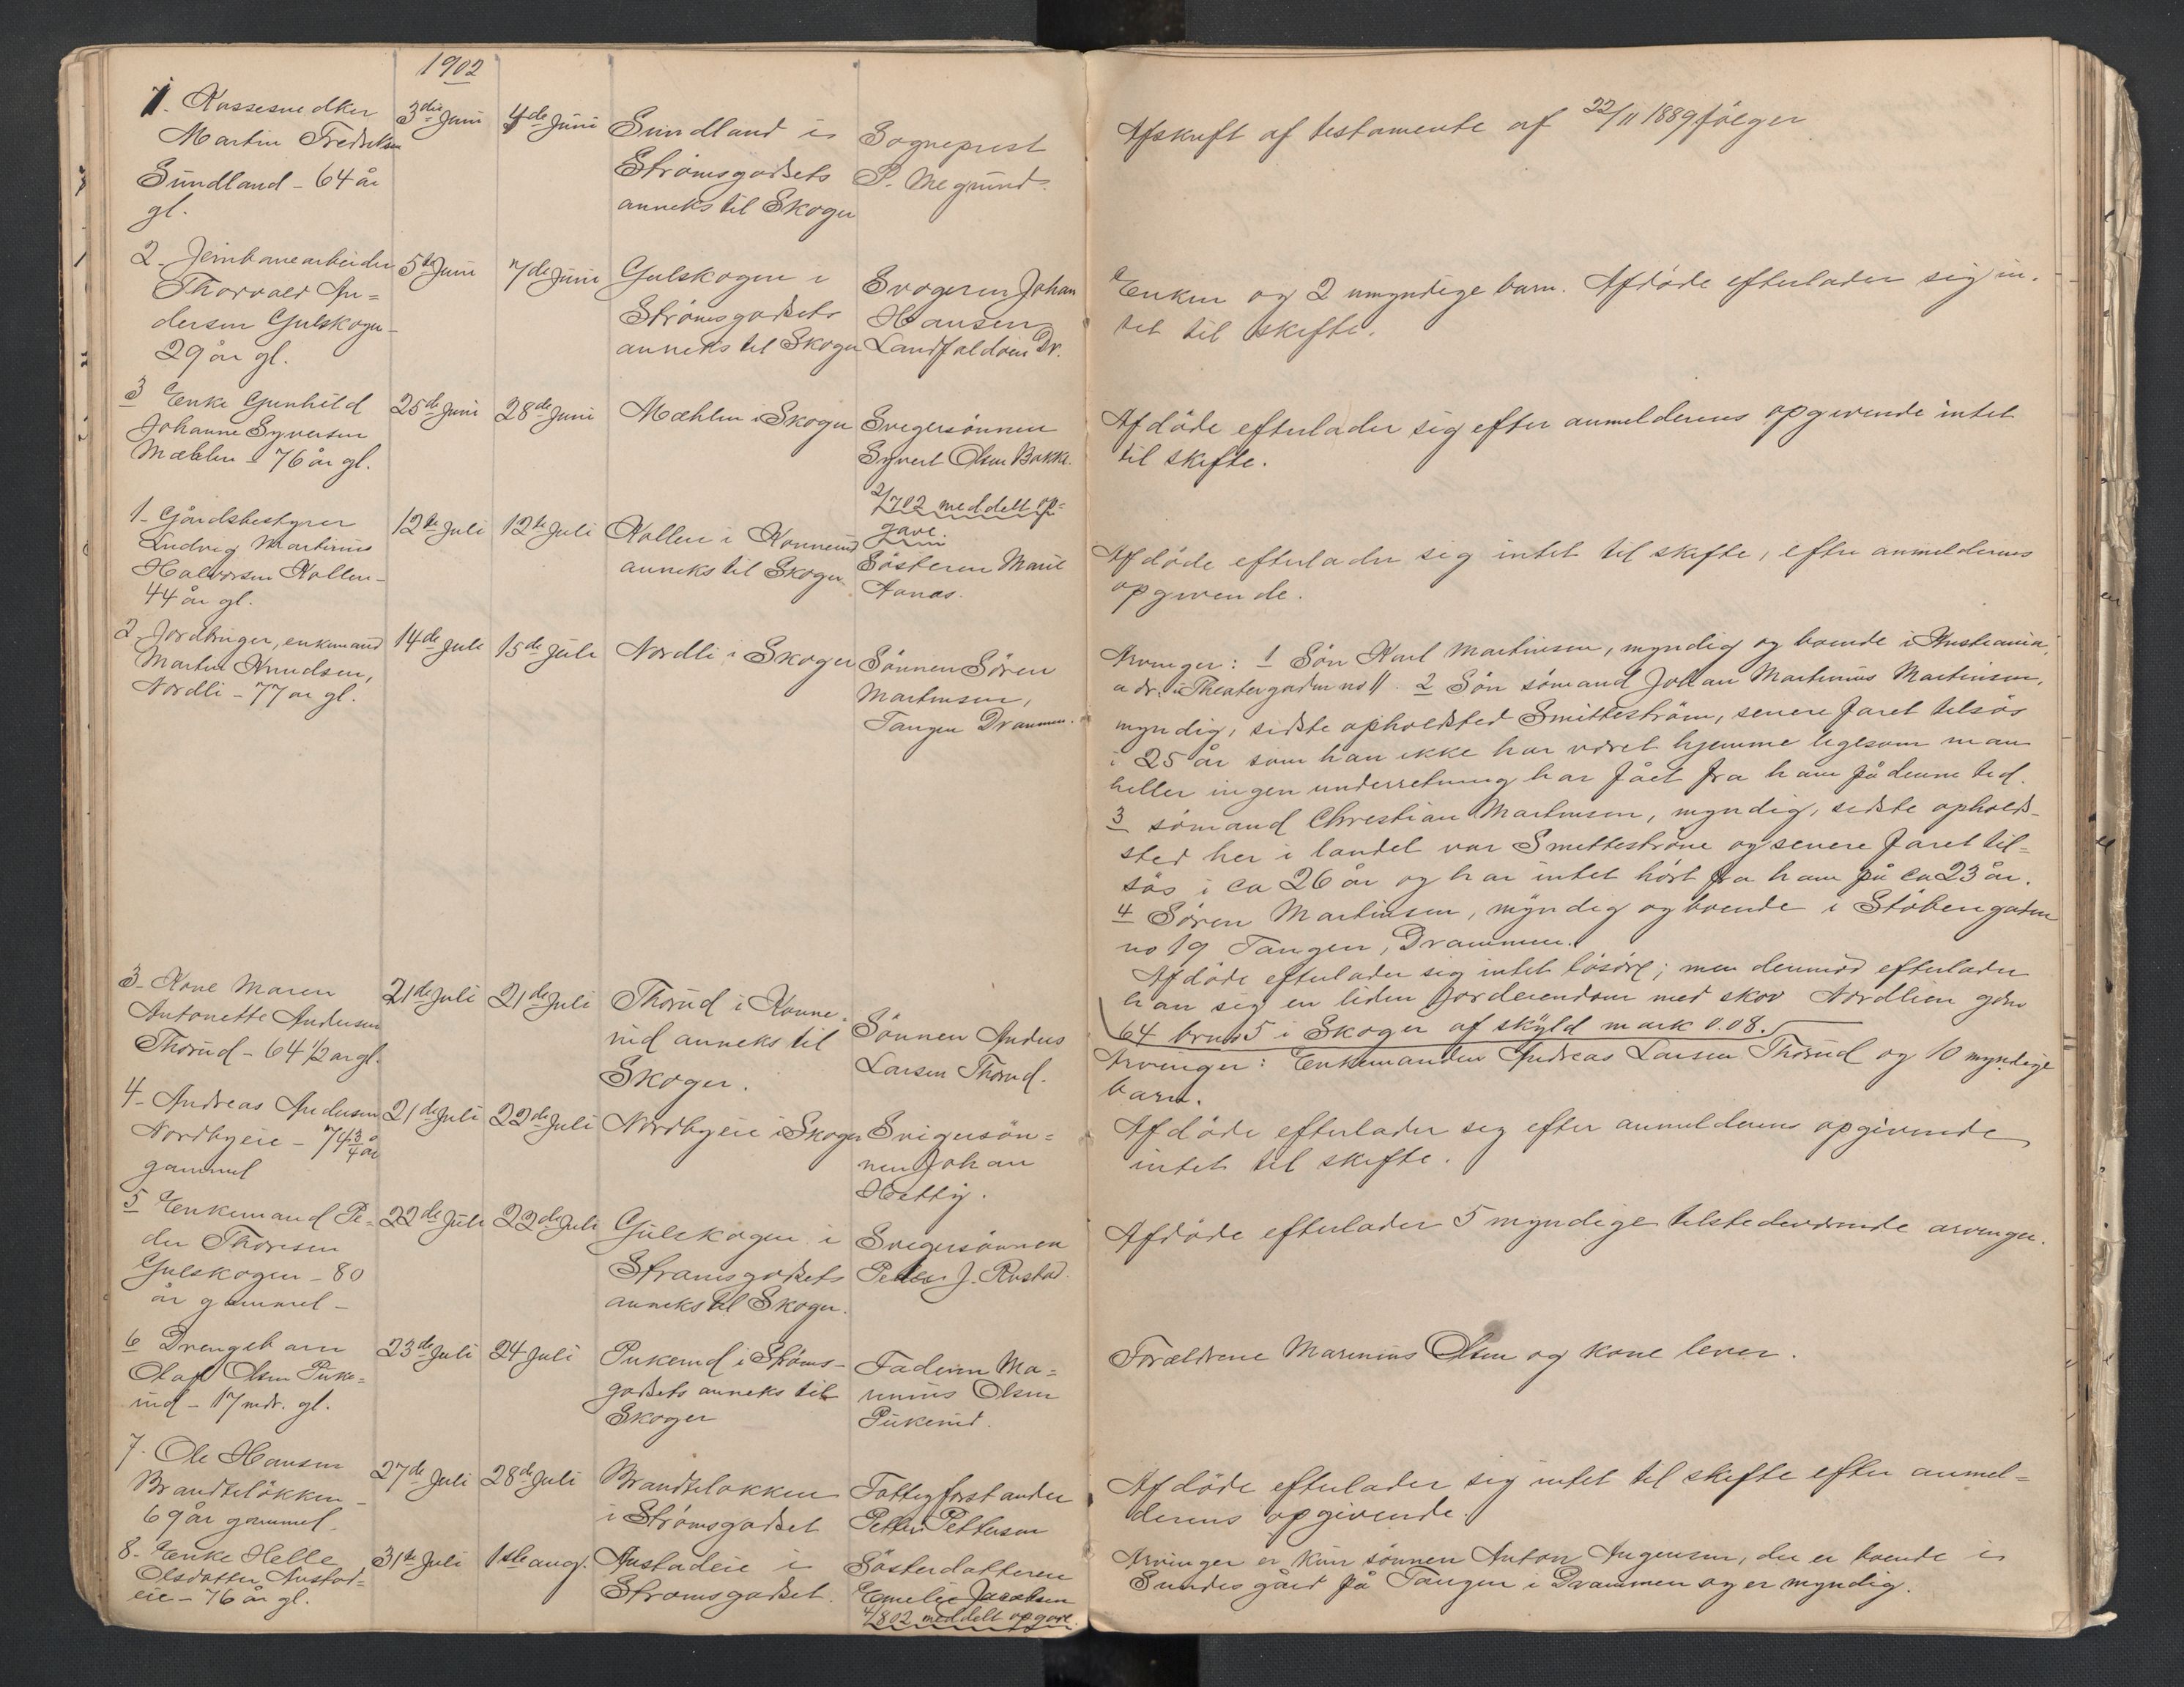 1902
1. Kassesnedker
Martin Fredriksen
Sundland - 64 år
gl.
3die Juni
4de Juni
Sundland i
Strømsgodsets
anneks til Skoger
Sogneprest
P. Megrund.
Afskrift af testamente af 22/11 1889 følger
2. Jernbanearbeider
Thorvald An=
dersen Gulskogen-
29 år gl.
5te Juni
7de Juni
Gulskogen i
Strømsgodsets
anneks til Skoger
Svogeren Johan
Hansen
Landfaldöen Dr.
Enken og 2 umyndige barn. Afdöde efterlader sig in-
tet til skifte.
3 Enke Gunhild
Johanne Syversen
Mæhlen - 76 år gl.
25de Juni
28de Juni
Mæhlen i Skoger
Svigersönnen
Syvert Olsen Bakke.
2/7 02 meddelt op=
gave.
Afdöde efterlader sig efter anmelderens opgivende intet
til skifte.
1- Gårdsbestyrer
Ludvig Martinius
Halvorsen Kollen-
44 år gl.
12te Juli
12te Juli
Kollen i Konnerud
anneks til Skoger
Söstren Marie
Aanæs.
Afdöde efterlader sig intet til skifte, efter anmelderens
opgivende.
2 Jordbruger, enkemand
Martin Knudsen,
Nordli - 77 år gl.
14de Juli
15de Juli
Nordli i Skoger
Sönnen Sören
Martinsen,
Tangen Drammen.
Arvinger: 1 Sön Karl Martinsen, myndig og boende i Kristiania,
adr. i Theatergaden no 11. 2 Sön sömand Johan Martinius Martinsen,
myndig, sidste opholdsted Smitteström, senere faret tilsös
i 25 år som han ikke har været hjemme ligesom man
heller ingen underretning har fået fra ham på denne tid.
3 sömand Christian Martinsen, myndig, sidste opholds-
sted her i landet var Smitteströme og senere faret til=
sös i ca 26 år og har intet hört fra ham på ca 23 år.
4 Sören Martinsen, myndig og boende i Stöbergaten
no 19 Tangen, Drammen.
Afdöde efterlader sig intet lösöre; men derimod efterlader
han sig en liden jordeiendom med skov Nordlien gdno
64 brno 5 i Skoger af skyld mark 0.08.
3- Kone Maren
Antonette Andersen
Thorud - 64 1/2 år gl.
21de Juli
21de Juli
Thorud i Konne-
rud anneks til
Skoger.
Sönnen Anders
Larsen Thorud.
Arvinger: Enkemanden Andreas Larsen Thorud og 10 myndige
barn.
4- Andreas Andersen
Nordbyeie - 74 3/4 år
gammel
21de Juli
22de Juli
Nordbyeie i Skoger
Svigersön=
nen Johan
Hettig.
Afdöde efterlader sig efter anmelderens opgivende
intet til skifte.
5 Enkemand Pe=
der Thoresen
Gulskogen - 80
år gammel-
22de Juli
22de Juli
Gulskogen i
Stromsgodsets
anneks til Skoger.
Svigersönnen
Peder J. Rustad.
Afdöde efterlader 5 myndige tilstedeværende arvinger.
6 Drengebarn
Olaf Olsen Puke=
rud - 17 mdr. gl.
23de Juli
24 Juli
Pukerud i Ströms-
godsets anneks til
Skoger
Faderen Ma=
rinius Olsen
Pukerud.
Forældrene Marinius Olsen og kone lever.
7. Ole Hansen
Brandtelökken -
69 år gammel.
27de Juli
28de Juli
Brandtelokken
i Strömsgodset
Fattigforstander
Petter Pettersen
Afdöde efterlader sig intet til skifte efter anmel=
derens opgivende.
8. Enke Helle
Olsdatter Austad=
eie - 76 år gl.
31te Juli
1ste aug.
Austadeie i
Stromsgodset.
Sösterdatteren
Emelie Jacobsen
4/8 02 meddelt opgave.
Arvinger er kun sönnen Anton Jngensen, der er boende i
Sundesgård på Tangen i Drammen og er myndig.